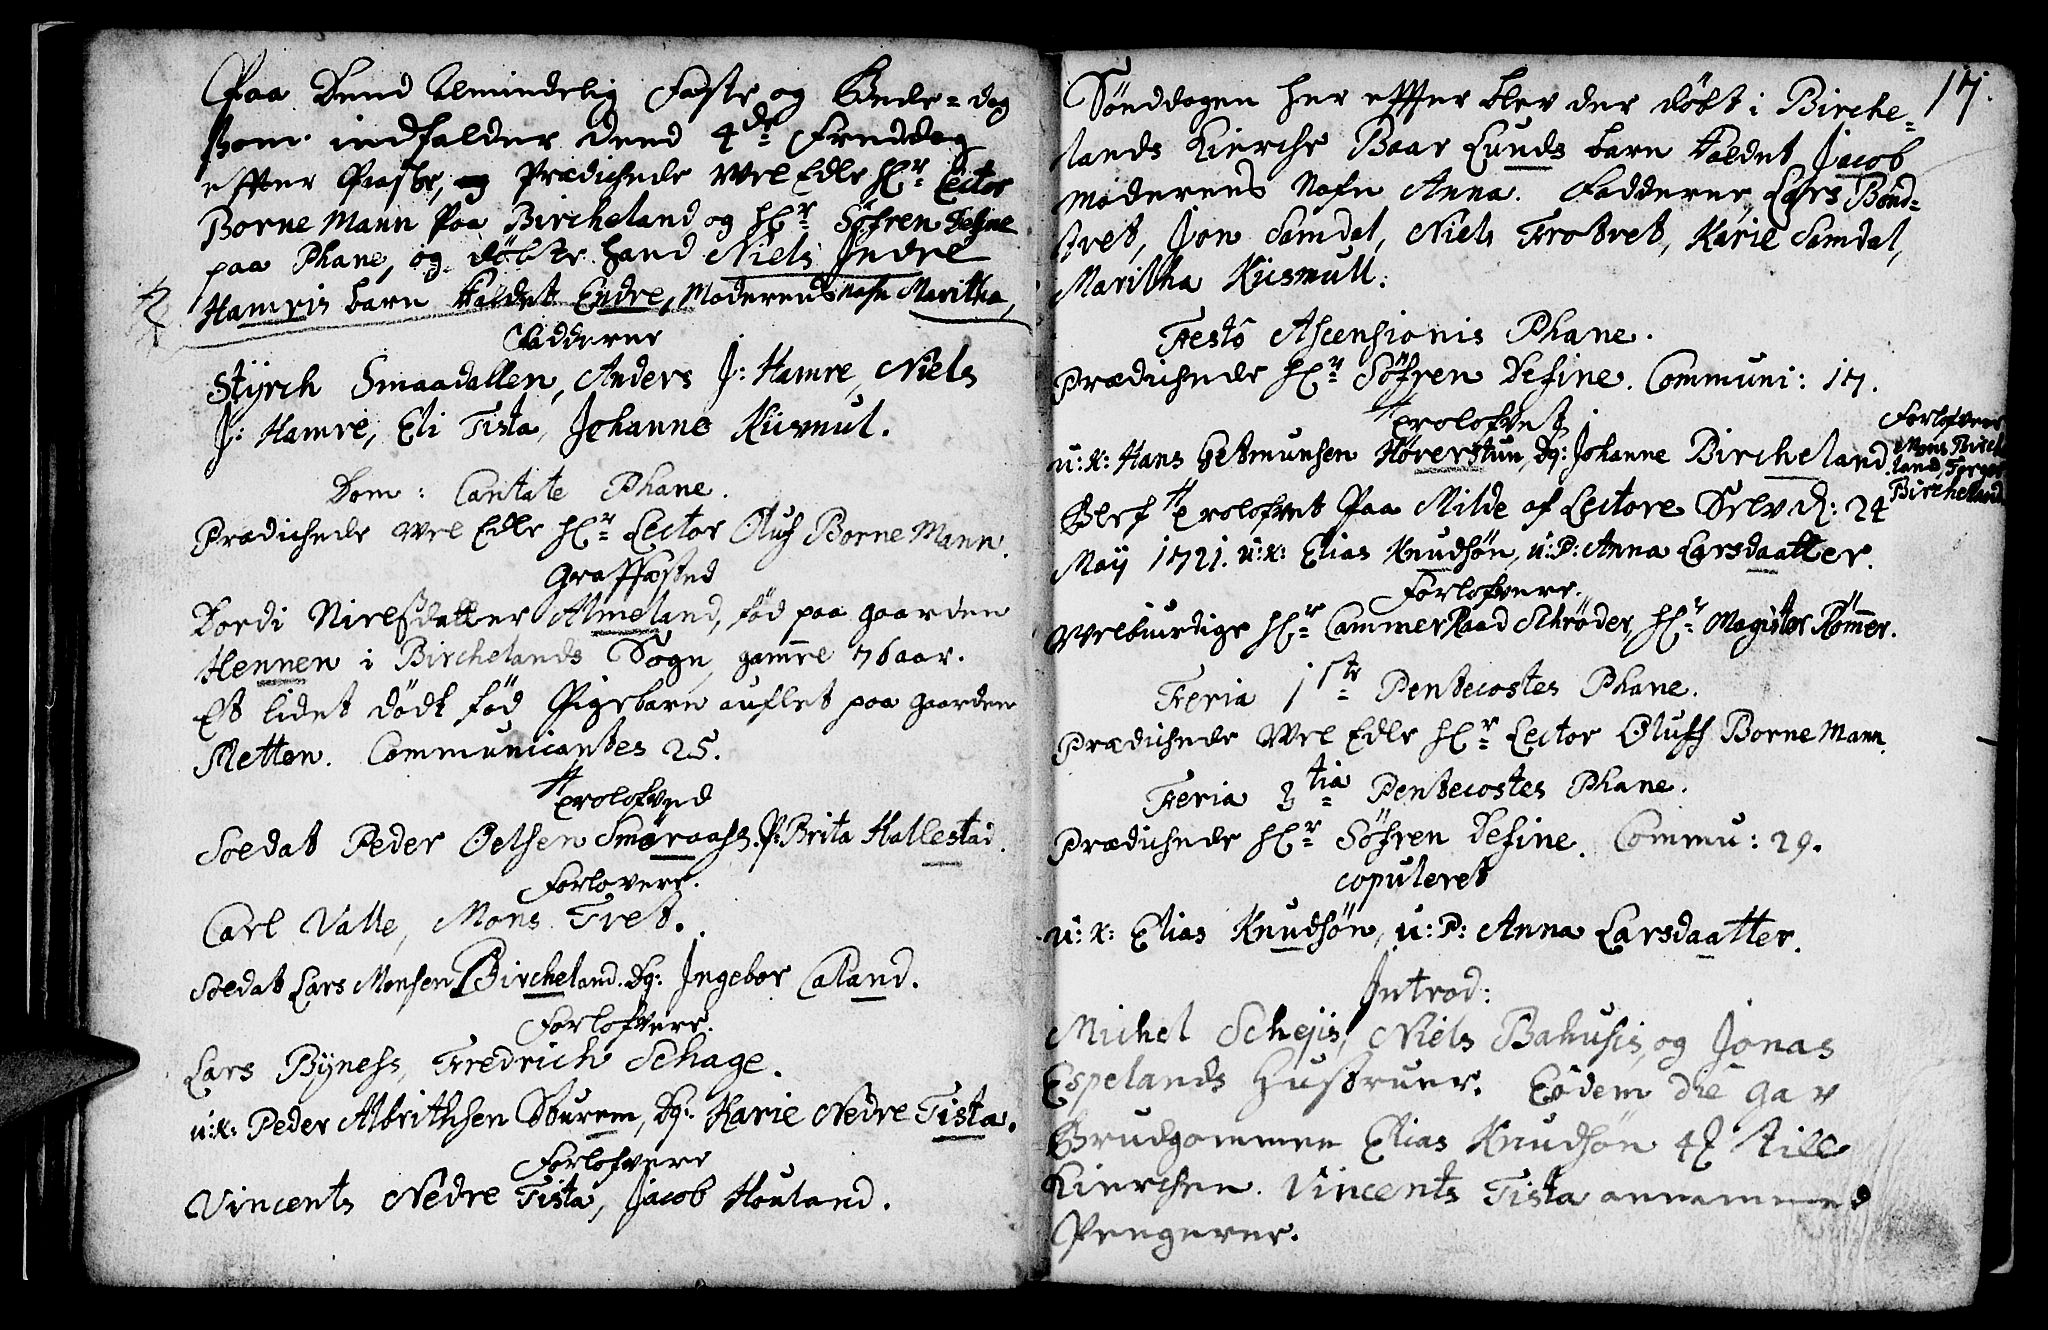 Paa Dend Almindelig Faste og Bede=dag
som indfalder dend 4de Freddag
effter Paaske, Prædichede Wel Edle Hr Lector
Borne Mann Paa Bircheland og Hr Söfren Define
paa Phane, og döbte hand Niels Indre
Hamris barn Kaldet Endre, Moderens nafn Maritha,
Fadderne
Styrch Smaadallen, Anders J: Hamre, Niels
J: Hamre, Eli Tista, Johanne Kiismul.
Dom: Cantate Phane.
Prædichede Wel Edle Hr Lector Oluf Borne Mann.
Graffæsted
Dordi Nielsdatter Almeland, föd paa gaarden
Hennen i Birchelands Sogn, gamle 76 aar.
Et lidet dödt föd Pigebarn auflet paa gaarden
Fletten. Communicantes 25.
Trolofved
Soldat Peder Oelsen Smøraass. P: Brita Hallestad.
Forlovere.
Carl Valle, Mons Tret.
Soldat Lars Monsen Bircheland. Dg: Ingebor Caland.
Forlofvere.
Lars Byness, Fredrich Schage.
u:K: Peder Albrithsen Sourem, Dg: Karie Nedre Tista.
Forlofvere
Vincents Nedre Tista, Jacob Houland.
17.
Sönddagen her effter blev der döbt i Birche=
lands Kierche Baar Lunds barn Kaldet Jacob
moderens Nafn Anna. Fadderne, Lars Bond=
tret, Jon Samdal, Niels Trotvet, Karie Samdal,
Maritha Kiismull.
Festo Ascensionis Phane.
Prædichede Hr Söfren Define. Communi: 17.
Trolofvet
u:K: Hans Getmunsen Hørerstun, Dg: Johanne Bircheland.
Forlofvere
Mons Birch
land, Torger
Bircheland
Blef Trolofvet Paa Milde af Lectore Selv d: 24
Maij 1721. u:K: Elias Knudsön, u:P: Anna Larsdaatter.
Forlofvere.
Welbuurdige Hr CammerRaad Schrøder, Hr Magister Römer.
Feria 1ste Pentecostes Phane.
Prædichede Wel Edle Hr Lector Oluff Borne Mann.
Feria 3tia Pentecostes Phane.
Prædichede Hr Söfren Define. Commu: 29.
copuleret
u:K: Elias Knudsön, u:P: Anna Larsdaatter.
Introd:
Michel Schejis, Niels Bakusis, og Jonas
Espelands Hustruer. Eodem die gav
Brudgommen Elias Knudsön till
Kierchen. Vincents Tista annammed
Pengerne.